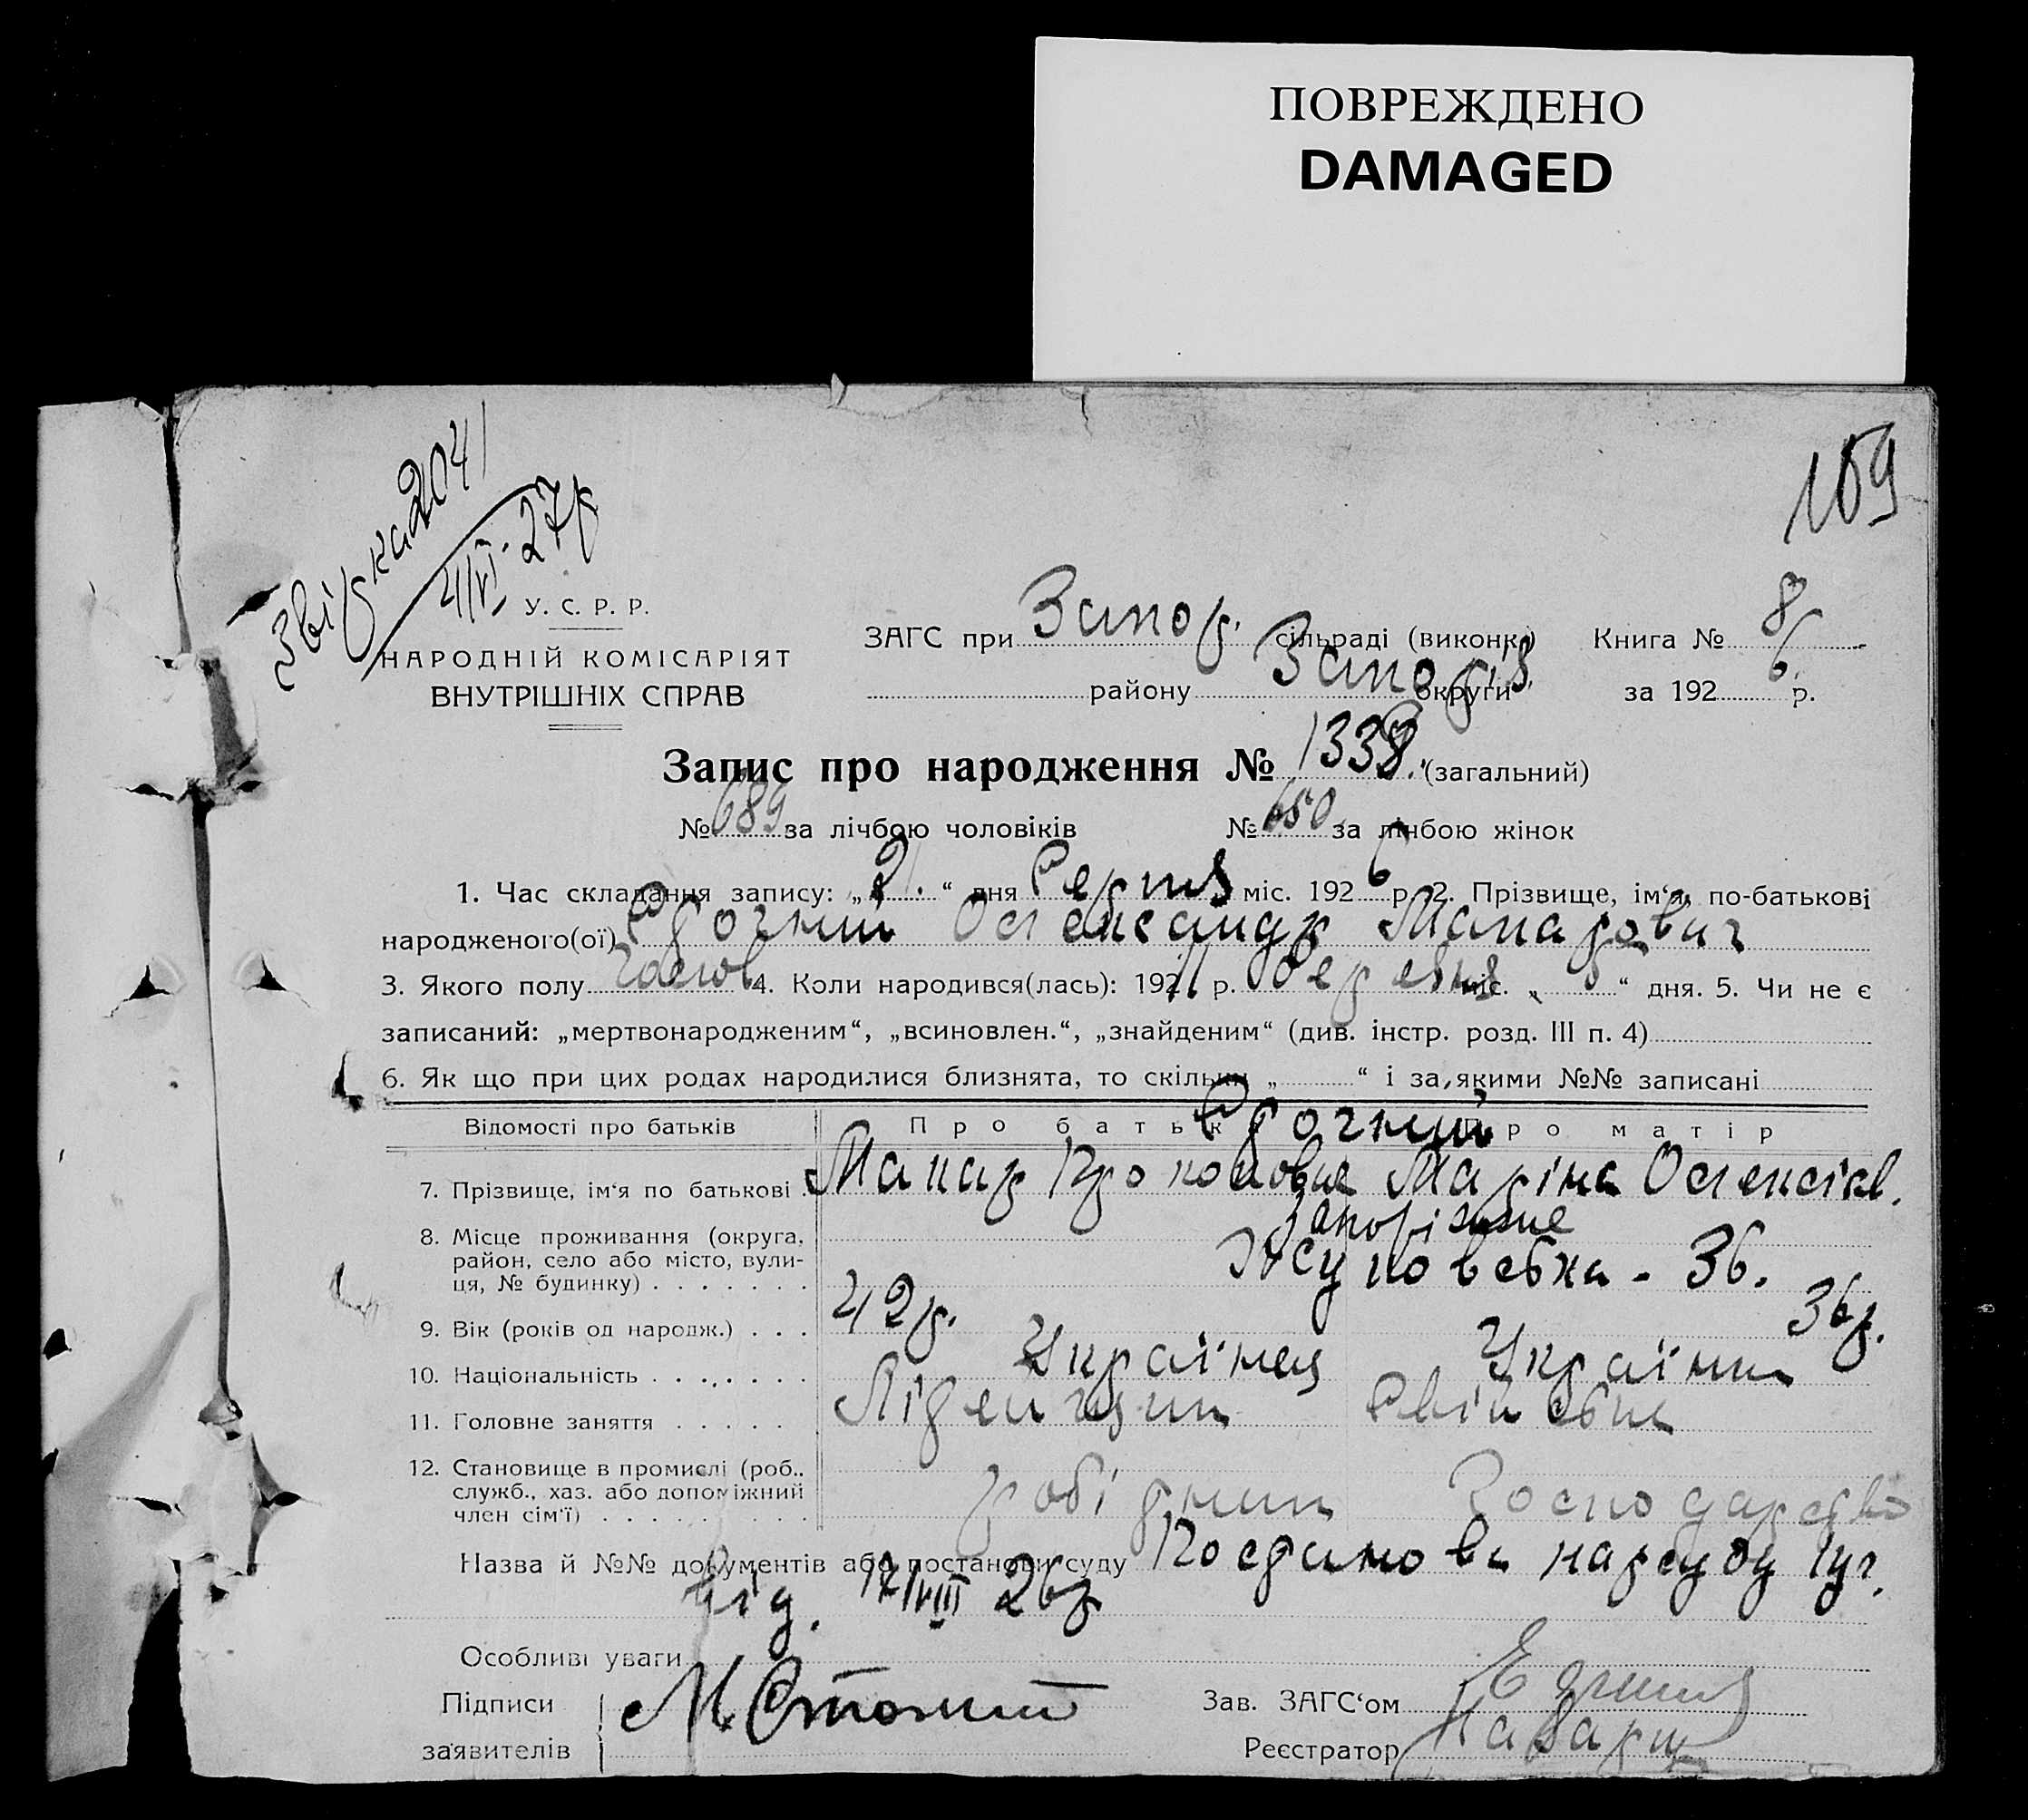 ПОВРЕЖДЕНО
DAMAGED
159
2041
4/VI. 27р
У. С. Р. Р.
НАРОДНІЙ КОМІСАРІЯТ
ВНУТРІШНІХ СПРАВ
ЗАГС при Запор. сільраді (виконк.) Книга № 8
району Запоріз округи за 192 6 р.
Запис про народження № 1338. (загальний)
№ 689 за лічбою чоловіків № 650 за лічбою жінок
1. Час складання запису: „21.“ дня Серпня міс. 192 6 р. 2. Прізвище, ім‘я, по-батькові
народженого(ої) Олександр Макарович
3. Якого полу Чолов 4. Коли народився(лась): 192 р. міс. „ “ дня. 5. Чи не є
записаний: „мертвонародженим“, „всиновлен.“, „знайденим“ (див. інстр. розд. III п. 4)
6. Як що при цих родах народилися близнята, то скільки „ “ і за якими №№ записані
Відомості про батьків Про батька Про матір
7. Прізвище, ім‘я по батькові Макар Прокопович Маріна Олексієв.
8. Місце проживання (округа, Запоріжжє
район, село або місто, вули-
ця, № будинку) Жуковська - 36.
9. Вік (років од народж.) 42р. 36р.
10. Національність Українец Українк
11. Головне заняття
12. Становище в промислі (роб..
служб., хаз. або допоміжний робітник Господарство
член сім‘ї)
Назва й №№ документів або постанови суду Постанова нарсуду 1уч.
від. 17/VIII 26р
Особливі уваги
Підписи Зав. ЗАГС‘ом
заявителів Реєстратор